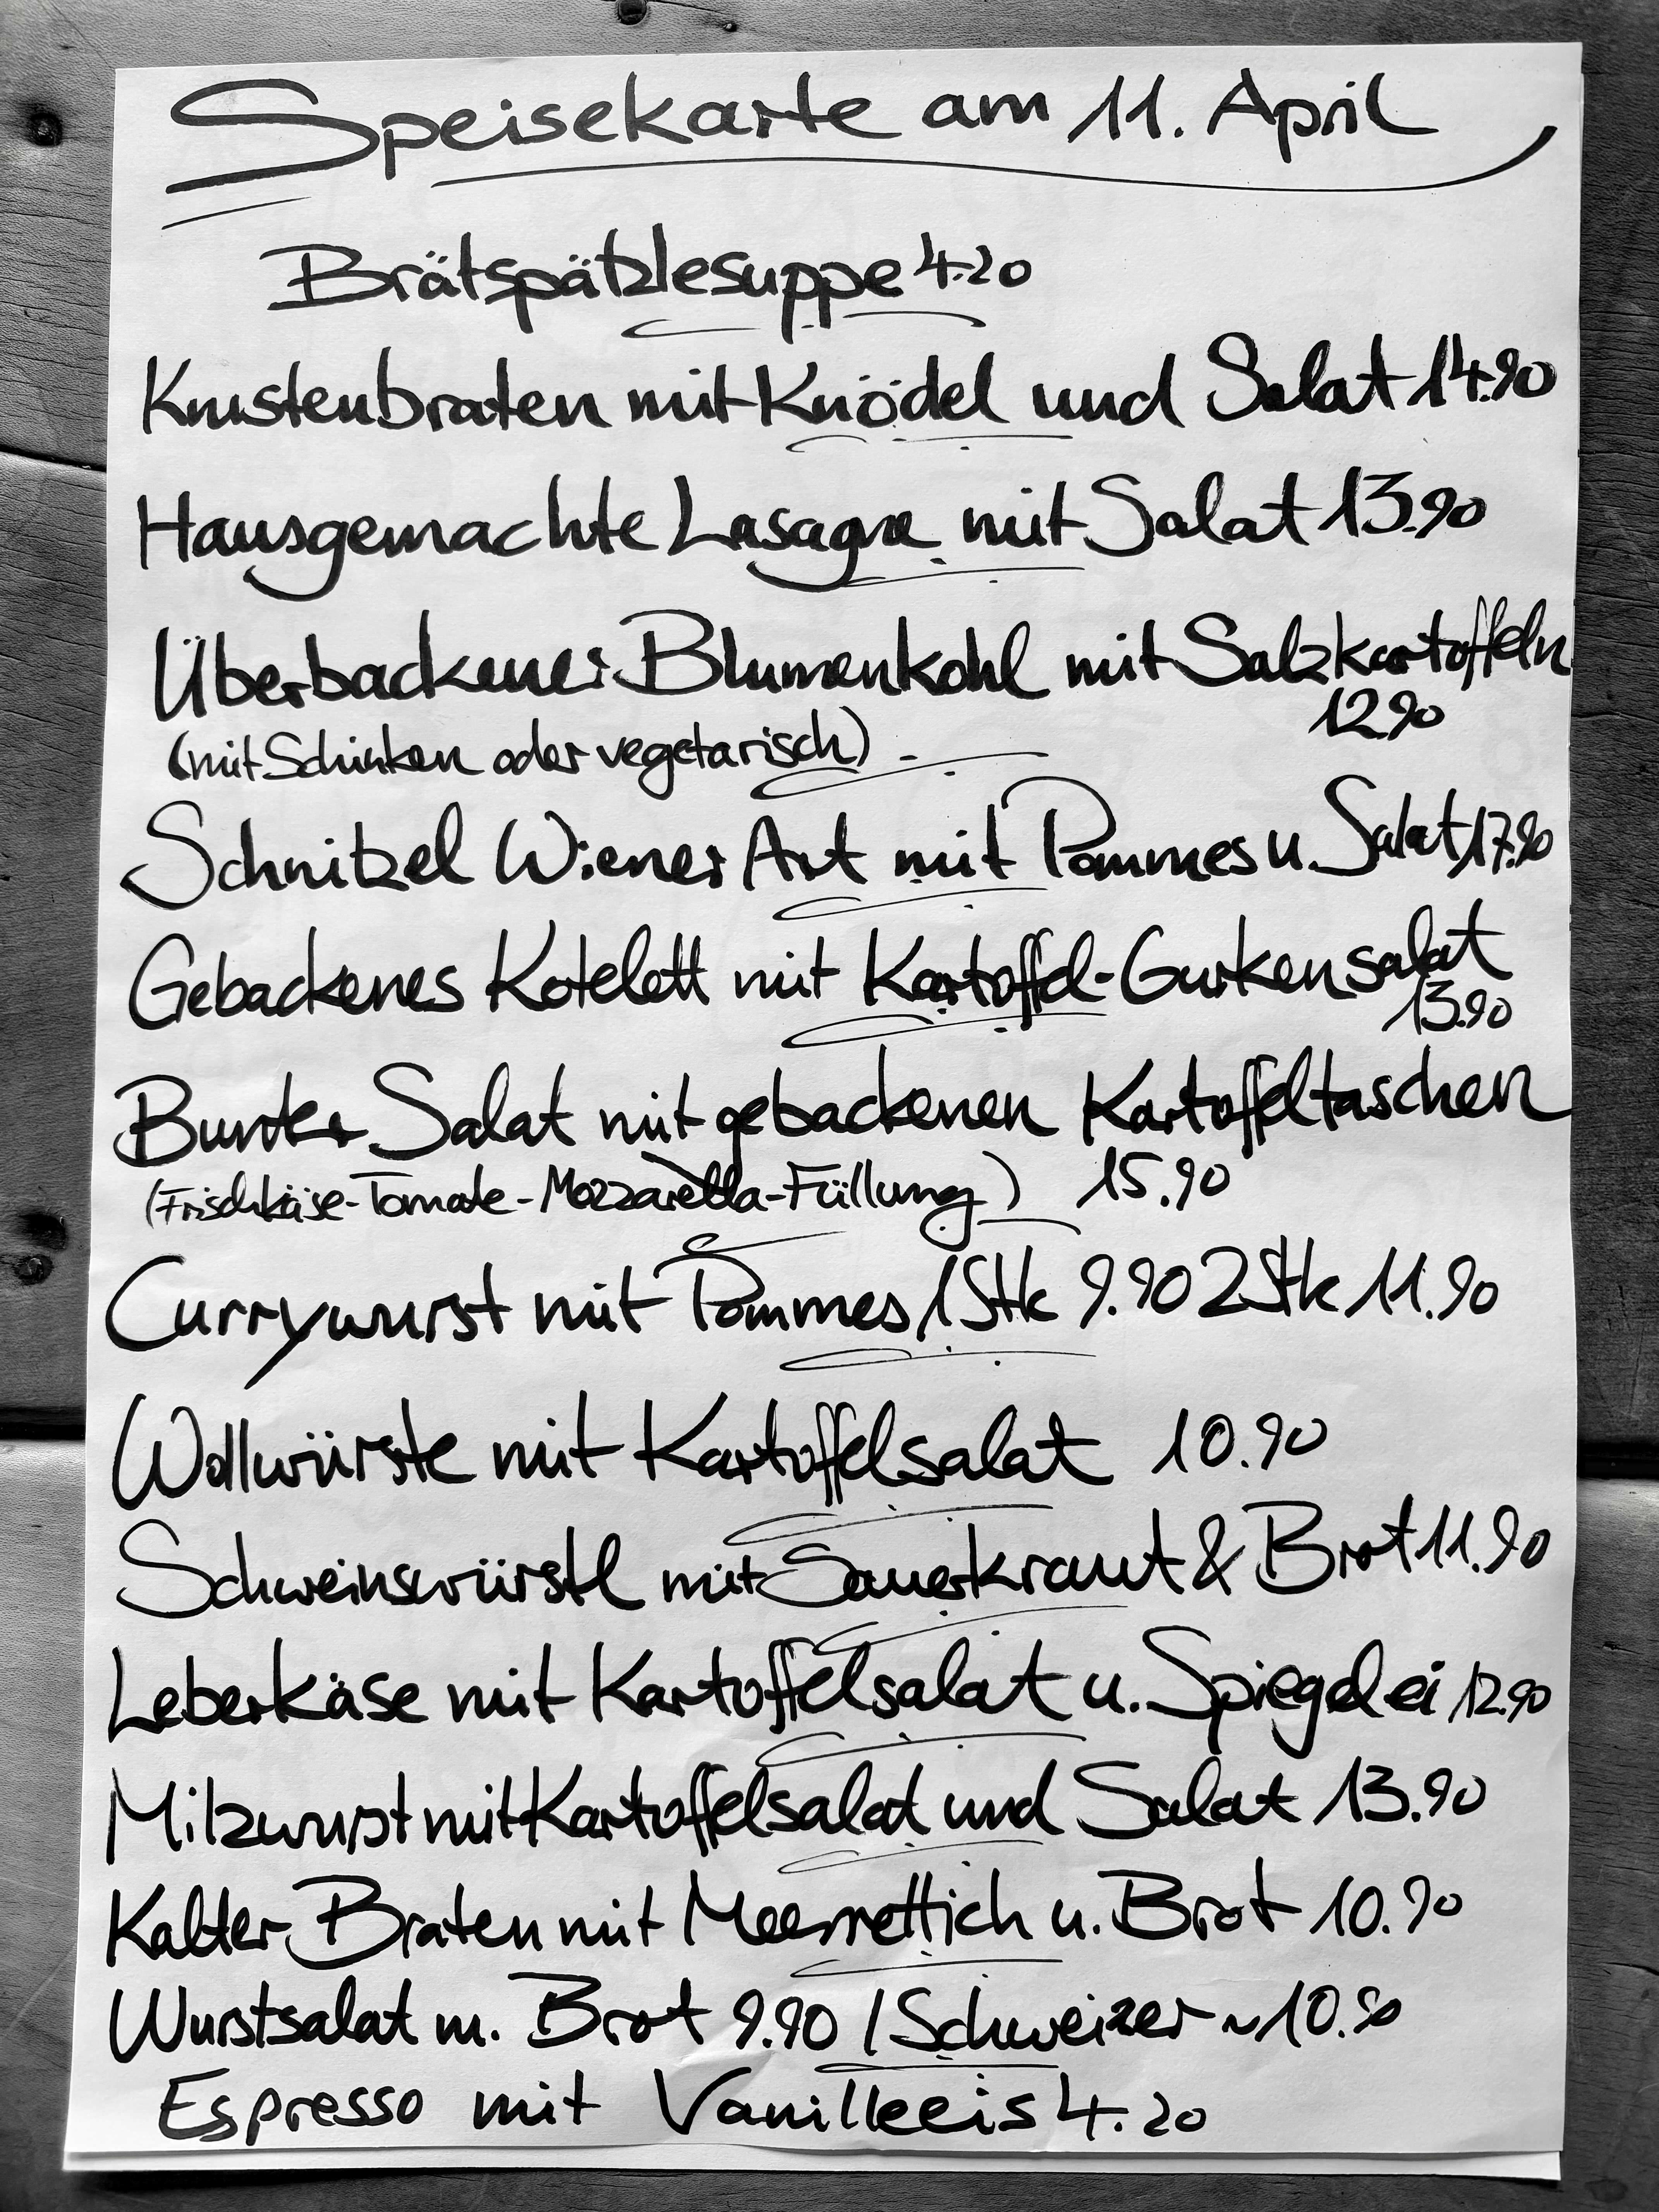 Speisekarte am 11. April
Brätspätzlesuppe 4.20
Krustenbraten mit Knödel und Salat 14.90
Hausgemachte Lasagne mit Salat 13.90
Überbackener Blumenkohl mit Salzkartoffeln
12.90
(mit Schinken oder vegetarisch)
Schnitzel Wiener Art mit Pommes u. Salat 17.90
Gebackenes Kotelett mit Kartoffel-Gurkensalat
13.90
Bunter Salat mit gebackenen Kartoffeltaschen
(Frischkäse-Tomate-Mozzarella-Füllung) 15.90
Currywurst mit Pommes 1 Stk 9.90 2 Stk 11.90
Wollwürste mit Kartoffelsalat 10.90
Schweinswürstl mit Sauerkraut & Brot 11.90
Leberkäse mit Kartoffelsalat u. Spiegelei 12.90
Milzwurst mit Kartoffelsalat und Salat 13.90
Kalter Braten mit Meerrettich u. Brot 10.90
Wurstsalat m. Brot 9.90 / Schweizer ~ 10.90
Espresso mit Vanilleeis 4.20